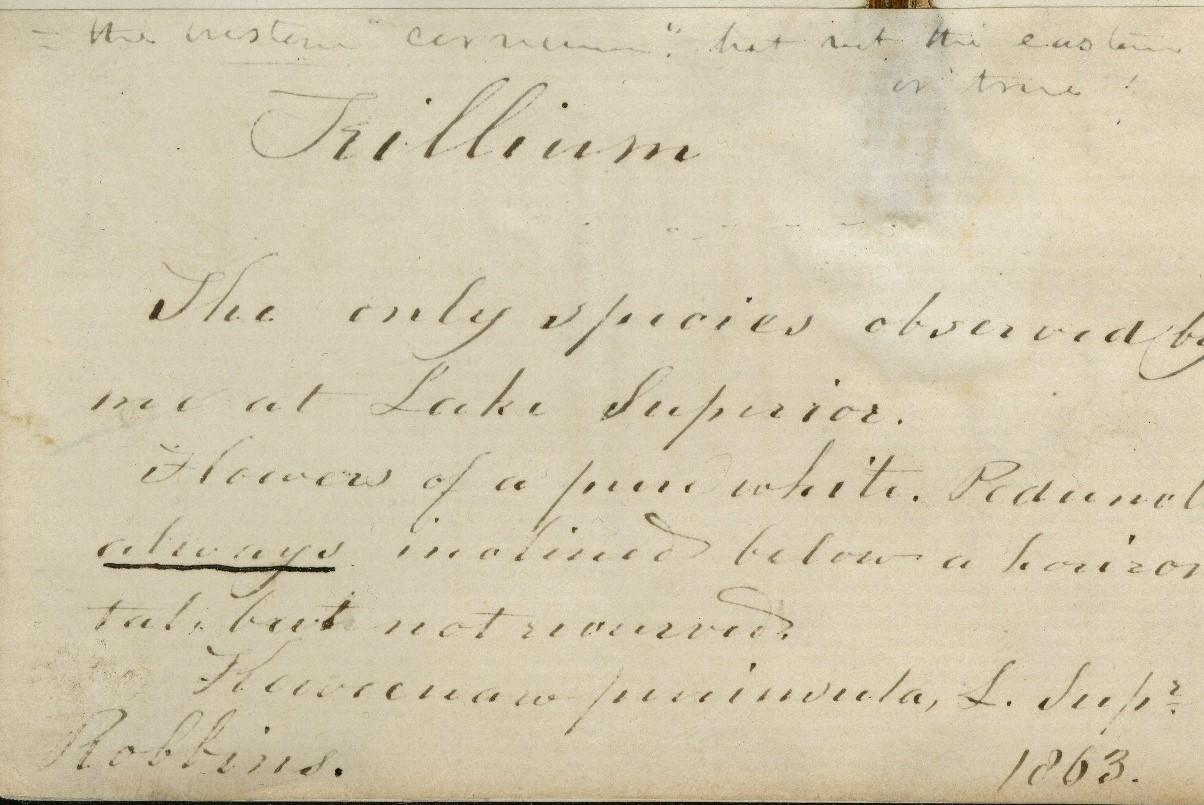 = the western "cernuum", but not the eastern
or true!
Trillium
The only species observed by
me at Lake Superior.
Flowers of a pure white. Peduncl
always inclined below a horizon
tal, but not recurved.
Keweenaw peninsula, L. Supr.
Robbins. 1863.